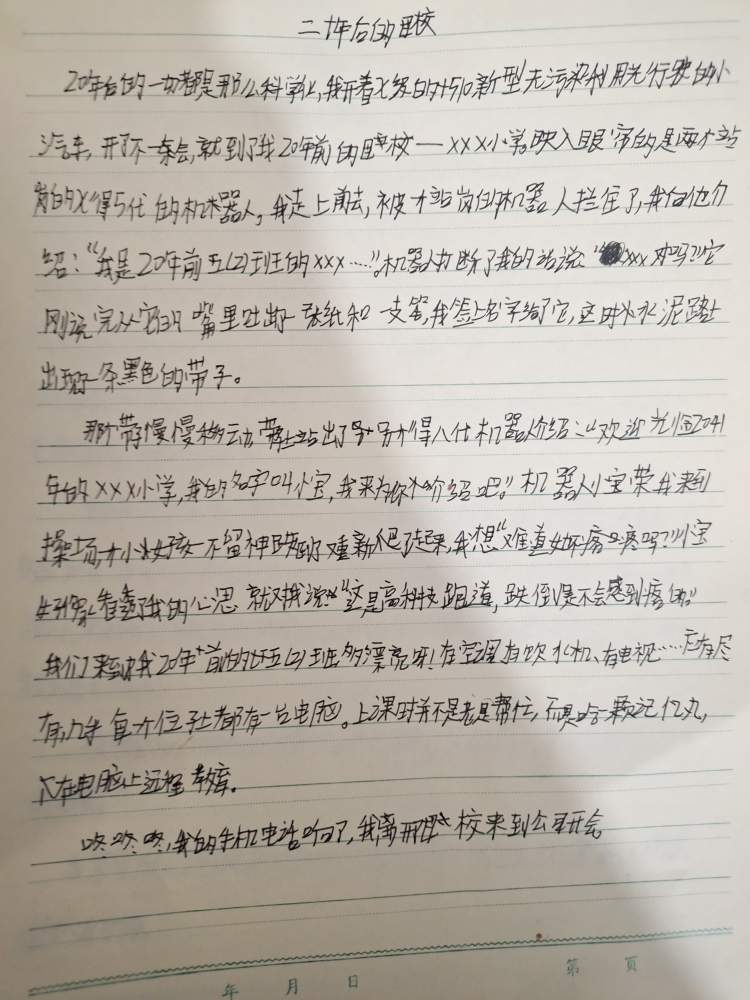 二十年后的母校
20年后的一切都是那么科学化,我开着X级的t510新型无污染利用光行驶的小
汽车,开了不一会,就到了我20年前的母校一XXX小学。映入眼帘的是两个站
岗的X得5代的机器人,我走上前去,被个站岗的机器人拦住了,我向他介
绍:“我是20年前五(2)班的xxx……”。机器人打断了我的话说:“xxx对吗?”它
刚说完从它的嘴里吐出了一张纸和一支笔,我签上名字给了它,这时水泥路上
出现了一条黑色的带子。
那个带子慢慢移动,带上站出了另个得八代机器人介绍:“欢迎光临2041
年的XXX小学,我的名字叫小宝,我来为你介绍吧。”机器人小宝带我来到
操场,个小女孩一不留神跌到了重新爬了起来,我想“难道她不疼吗?”小宝
好像看透了我的心思就对我说:“这是高科技跑道,跌倒是不会感到疼的。”
我们来到我20年前的五(2)班多漂亮呀!在室里有饮水机、有电视……应有尽
有,几乎每个位子上都有一台电脑。上课时并不是老是帮忙,而是吃一颗记忆丸,
在电脑上远程教育。
咚咚咚,我的手机电话响了,我离开母校来到公司开会。